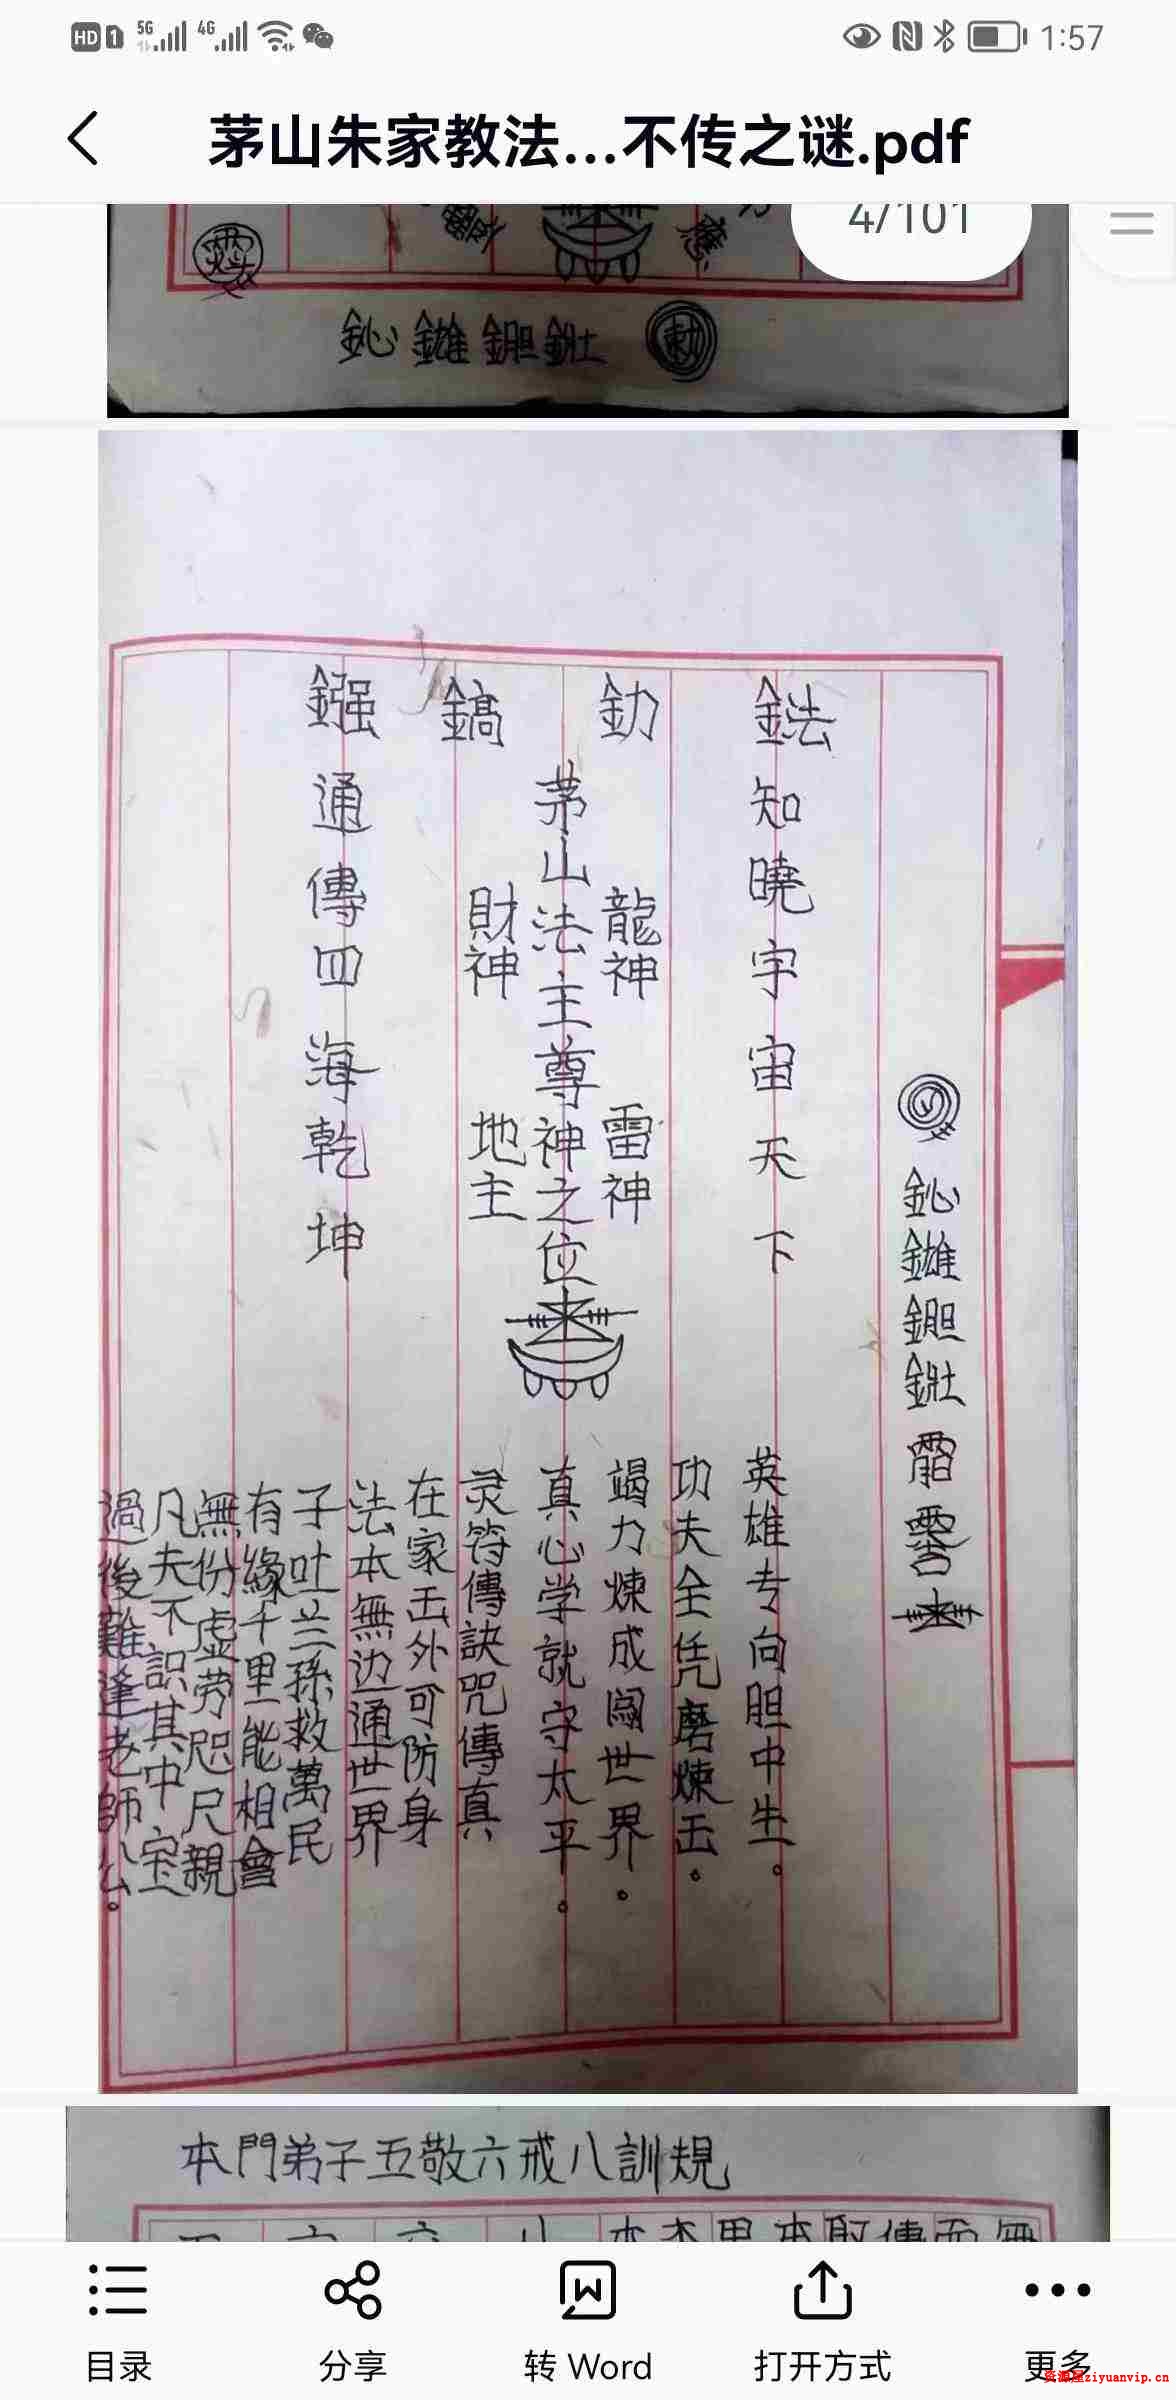 HD 1 5G 4G 1:57
茅山朱家教法...不传之谜.pdf
4/101
鈊 鐤 鉭
勅
鈊
鍅 釛 鎬 鏹
知曉宇宙天下
龍神
雷神
茅山法主尊神之位
財神
地主
通傳四海乾坤
英雄专向胆中生。
功夫全凭磨煉玉。
竭力煉成闯世界。
真心学就守太平。
灵符傳訣咒傳真
在家玉外可防身
法本無边通世界
子吐兰孫救萬民
有緣千里能相會
無份虚劳咫尺親
凡夫不識其中宝
過後難逢老師公。
本門弟子五敬六戒八訓規
目录
分享
转 Word
打开方式
更多
资源屋ziyuanvip.cn